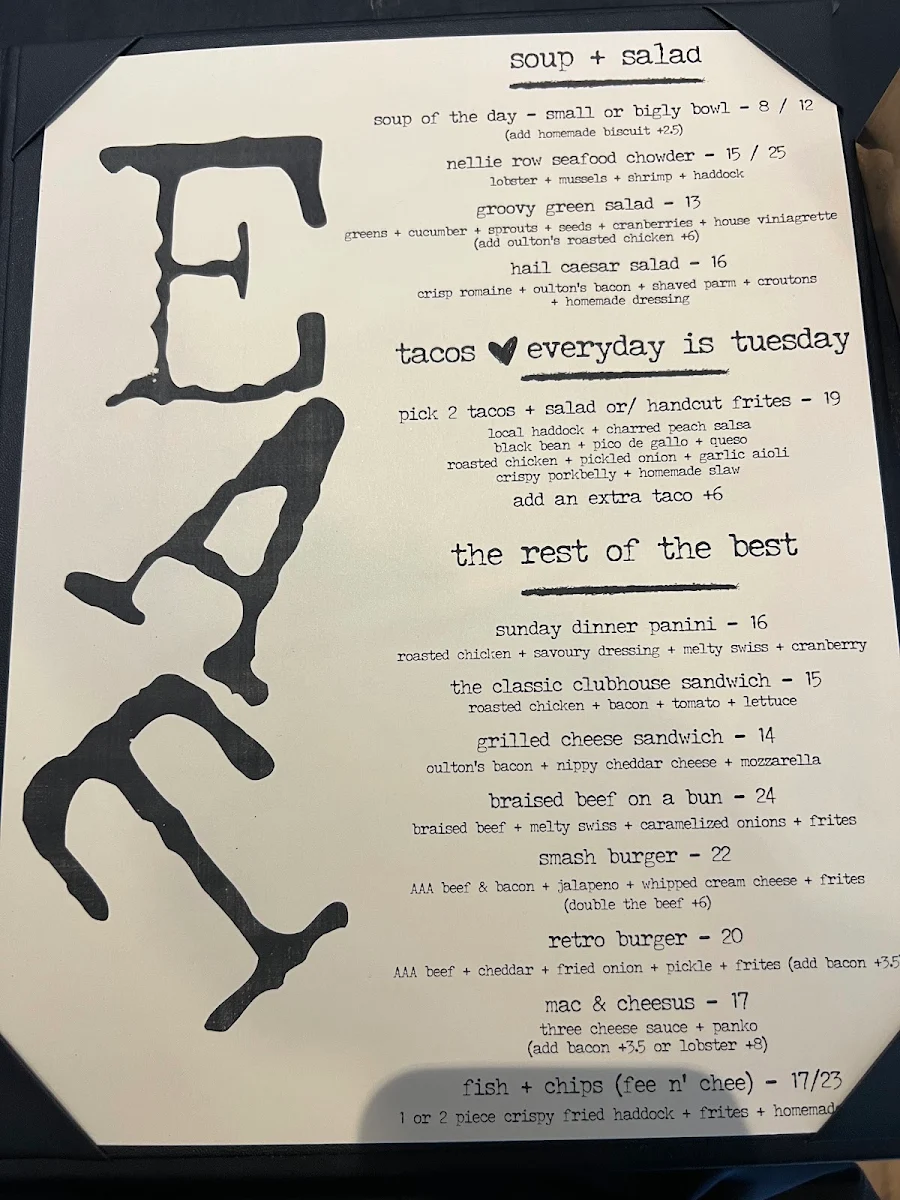 EAT
soup + salad
soup of the day - small or bigly bowl - 8 / 12
(add homemade biscuit +2.5)
nellie row seafood chowder - 15 / 25
lobster + mussels + shrimp + haddock
groovy green salad - 13
greens + cucumber + sprouts + seeds + cranberries + house viniagrette
(add oulton's roasted chicken +6)
hail caesar salad - 16
crisp romaine + oulton's bacon + shaved parm + croutons
+ homemade dressing
tacos ♥ everyday is tuesday
pick 2 tacos + salad or/ handcut frites - 19
local haddock + charred peach salsa
black bean + pico de gallo + queso
roasted chicken + pickled onion + garlic aioli
crispy porkbelly + homemade slaw
add an extra taco +6
the rest of the best
sunday dinner panini - 16
roasted chicken + savoury dressing + melty swiss + cranberry
the classic clubhouse sandwich - 15
roasted chicken + bacon + tomato + lettuce
grilled cheese sandwich - 14
oulton's bacon + nippy cheddar cheese + mozzarella
braised beef on a bun - 24
braised beef + melty swiss + caramelized onions + frites
smash burger - 22
AAA beef & bacon + jalapeno + whipped cream cheese + frites
(double the beef +6)
retro burger - 20
AAA beef + cheddar + fried onion + pickle + frites (add bacon +3.5
mac & cheesus - 17
three cheese sauce + panko
(add bacon +3.5 or lobster +8)
fish + chips (fee n' chee) - 17/23
1 or 2 piece crispy fried haddock + frites + homemad